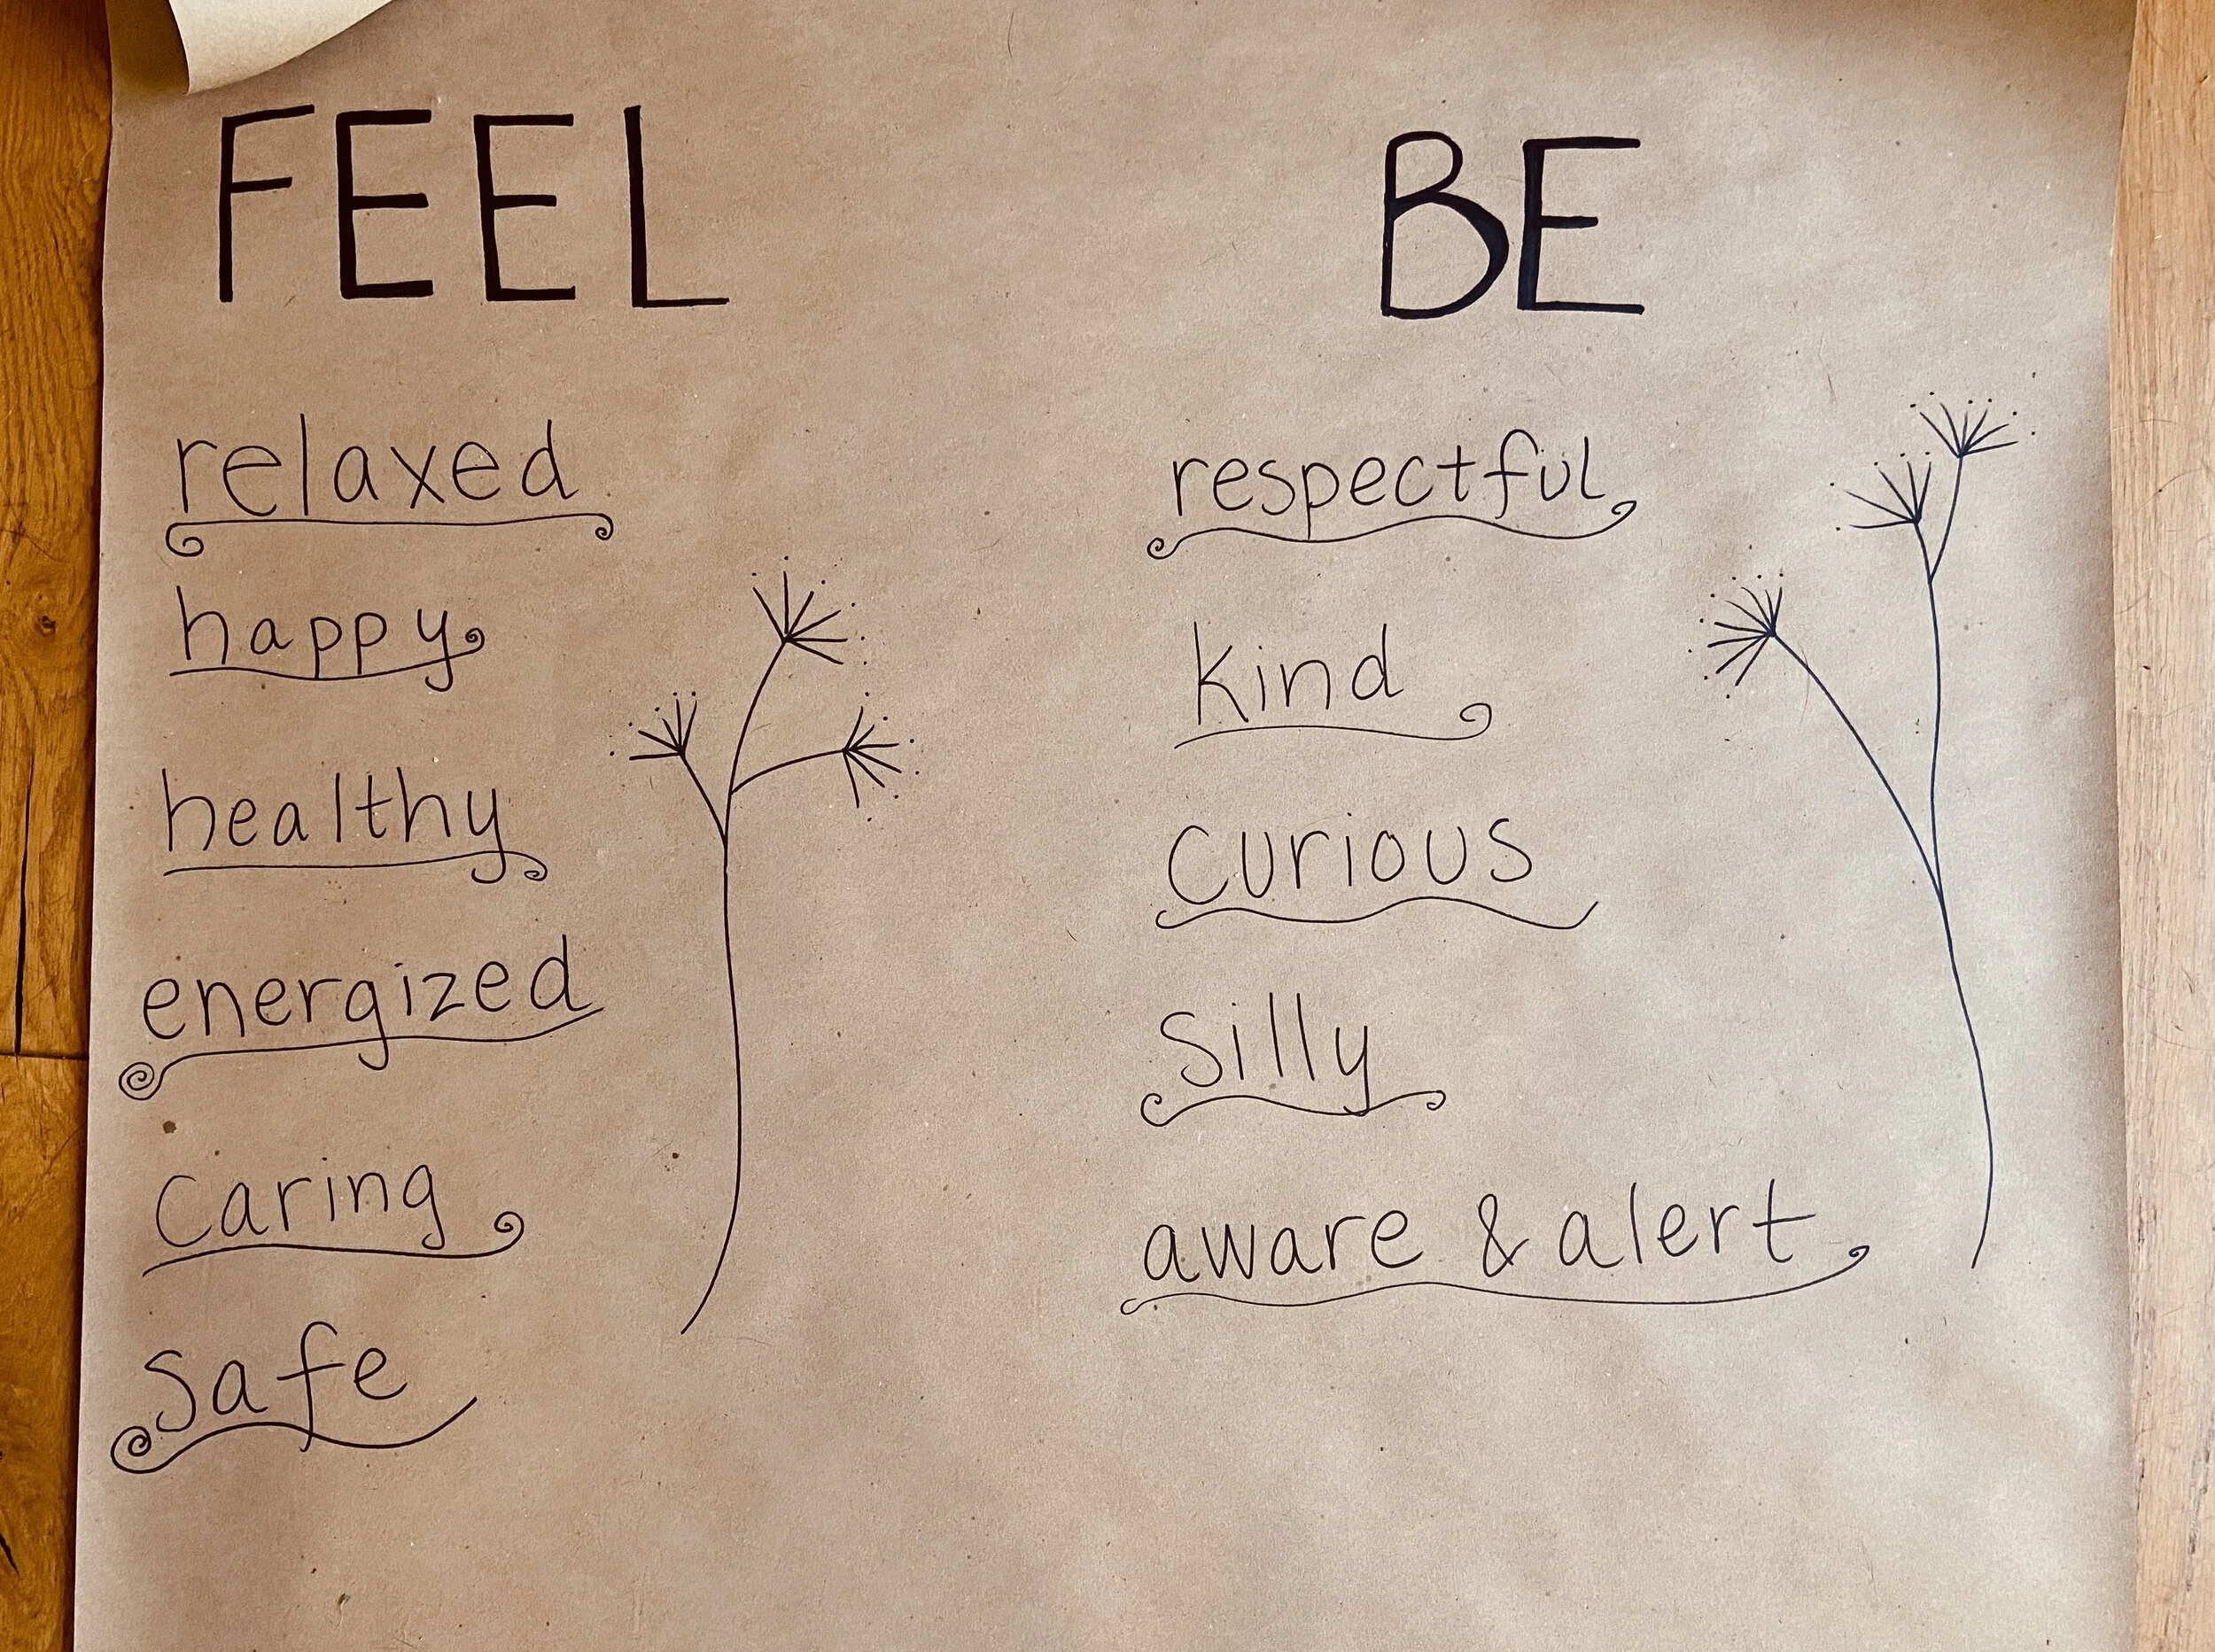 FEEL
relaxed
happy
healthy
energized
caring
safe
BE
respectful
kind
curious
silly
aware & alert